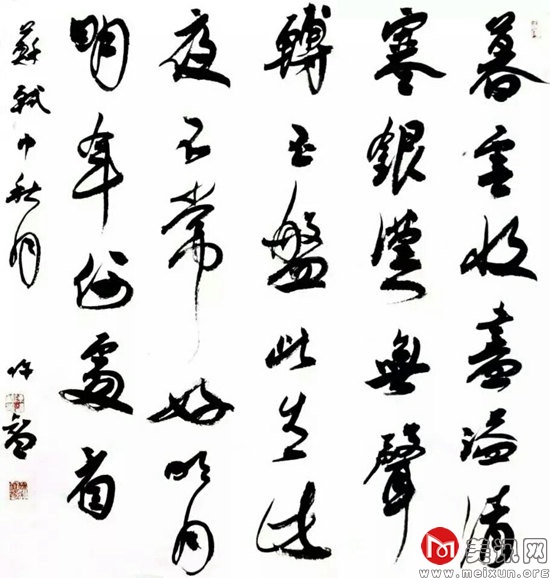 暮雲收盡溢清
寒銀漢無聲
轉玉盤此生此
夜不常好明月
明年何處看
蘇軾中秋月
美讯网
www.meixun.org